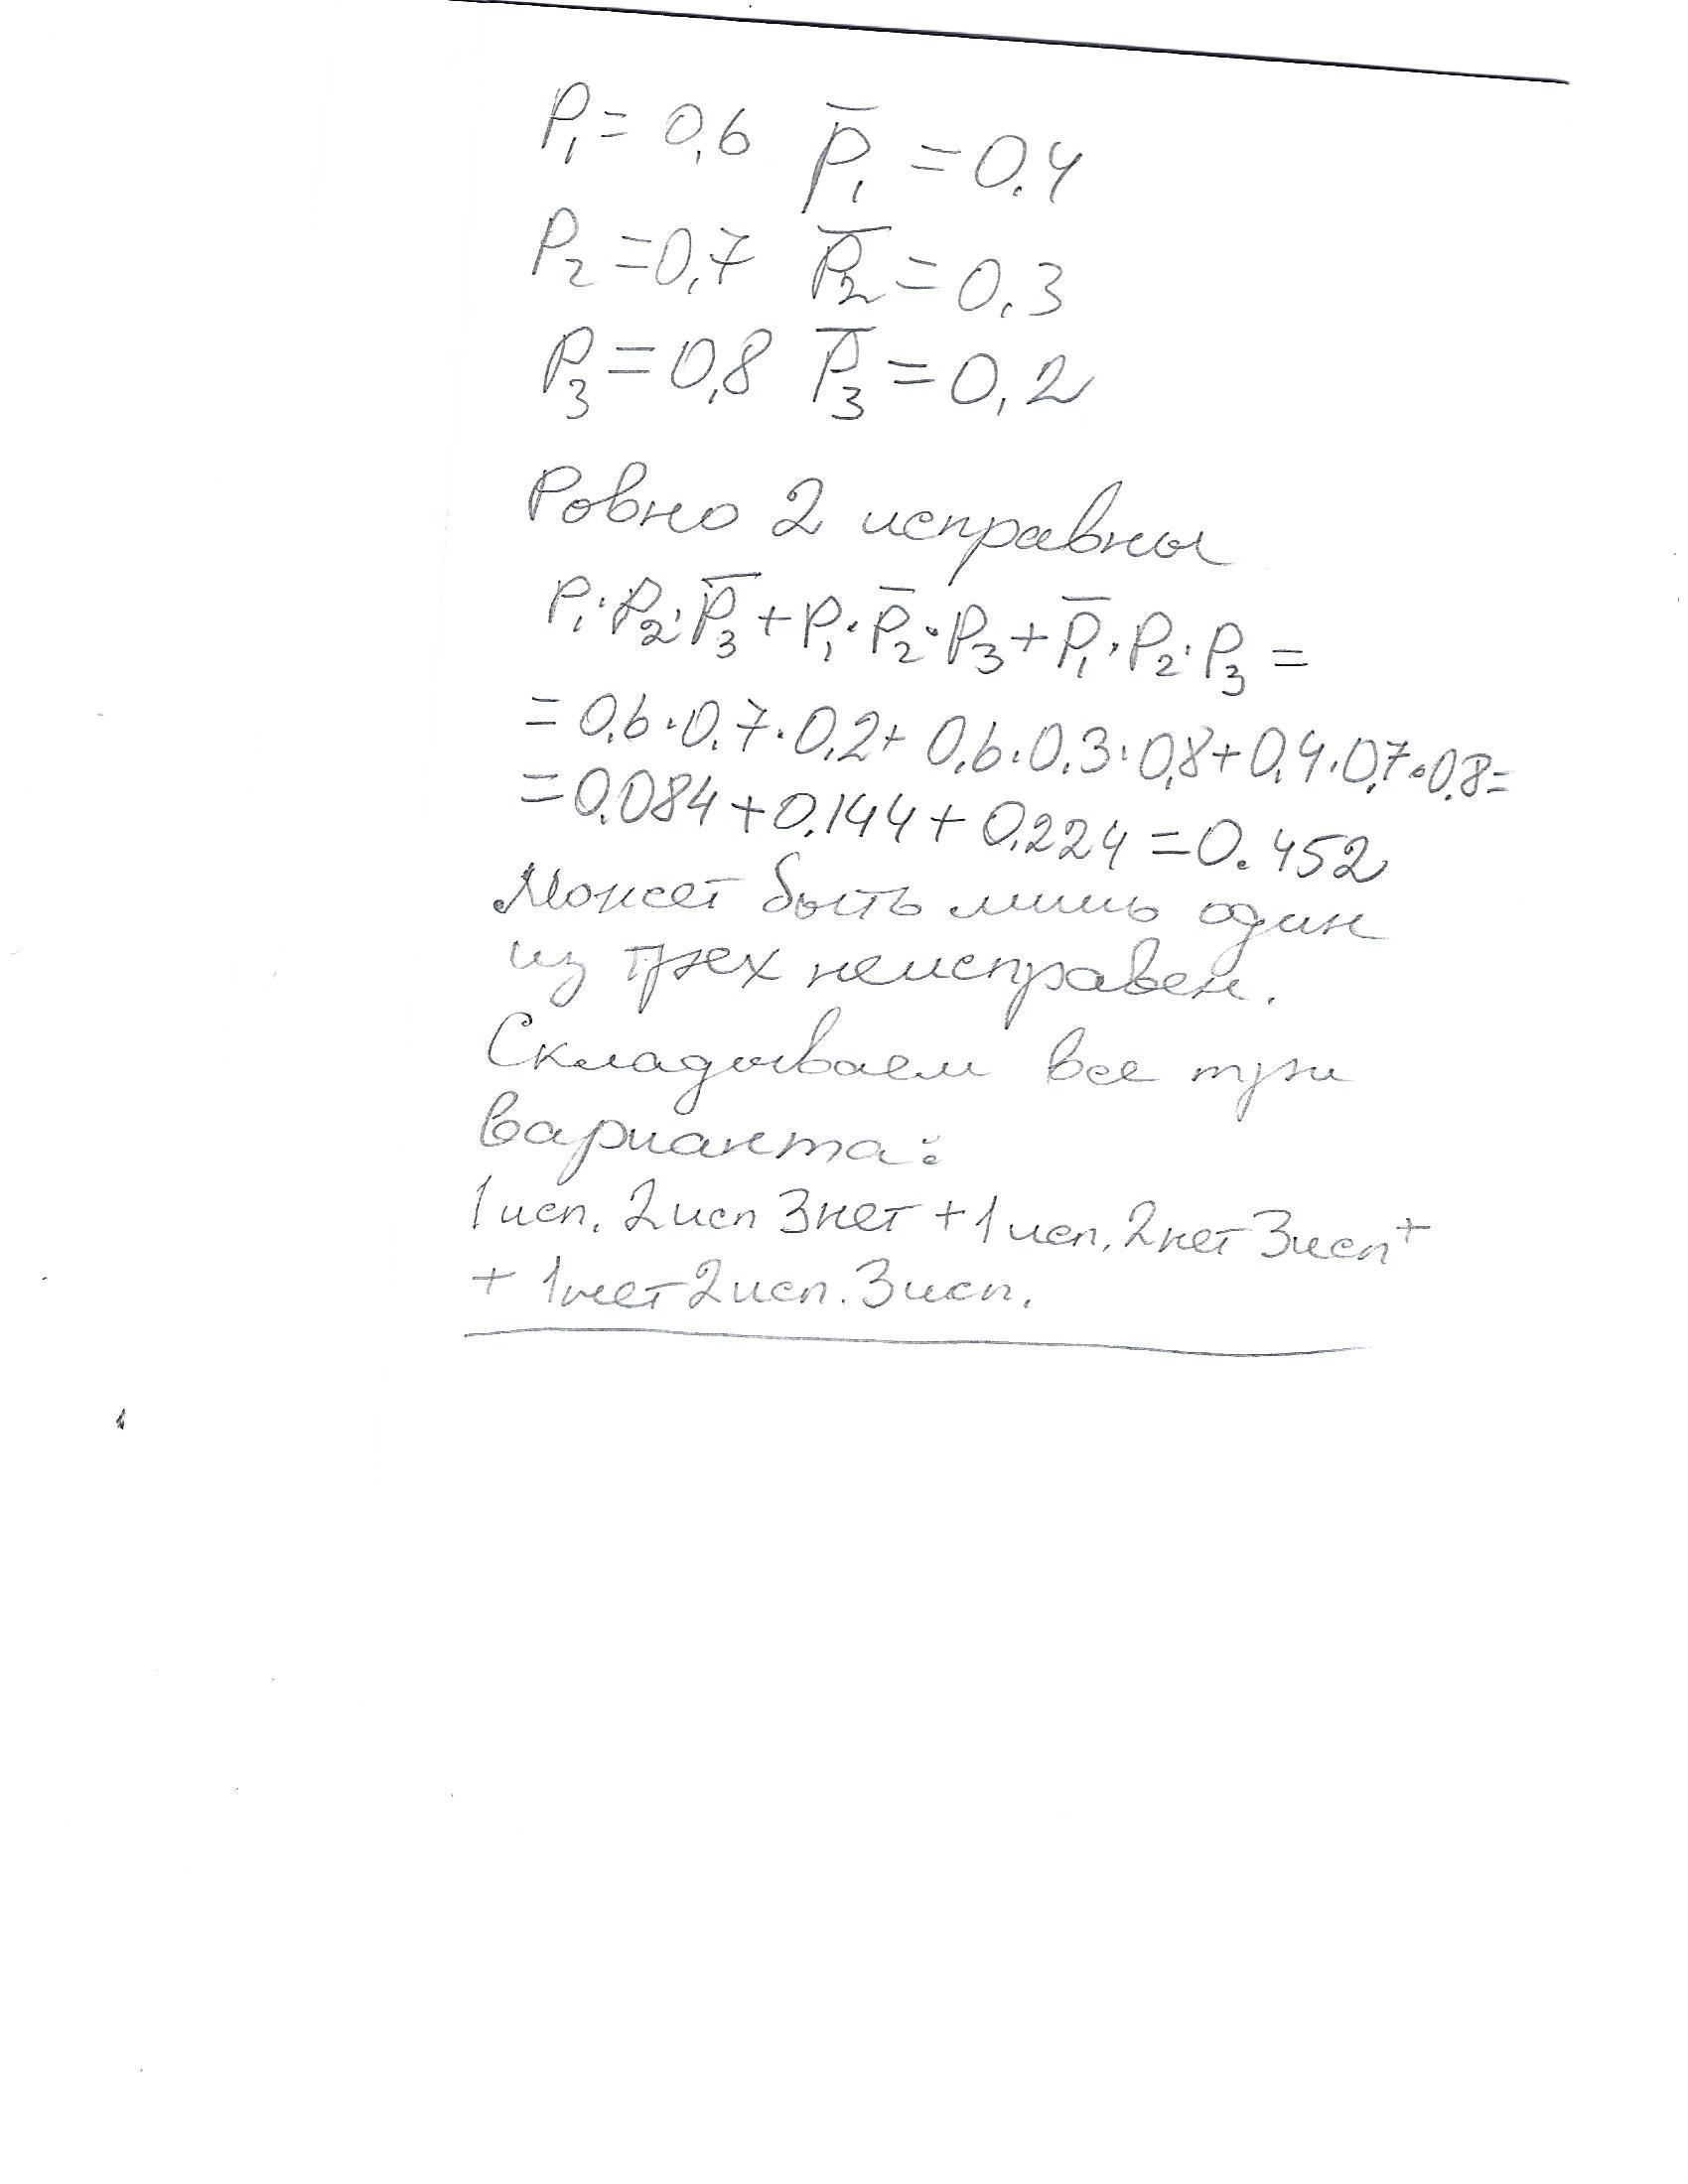 P₁ = 0,6 P̅₁ = 0.4
P₂ = 0,7 P̅₂ = 0.3
P₃ = 0,8 P̅₃ = 0,2
Ровно 2 исправны
P₁·P₂·P̅₃ + P₁·P̅₂·P₃ + P̅₁·P₂·P₃ =
= 0,6·0,7·0,2 + 0,6·0,3·0,8 + 0,4·0,7·0,8 =
= 0.084 + 0.144 + 0.224 = 0.452
Может быть лишь один
из трех неисправен.
Складываем все три
варианта:
1 исп. 2 исп 3 нет + 1 исп. 2 нет 3 исп +
+ 1 нет 2 исп. 3 исп.